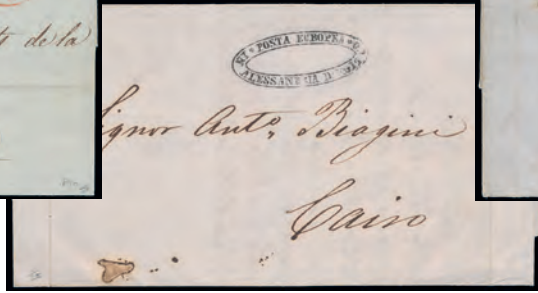 ts de la
POSTA EUROPEA
ALESSANDRIA D'EG
ignor Anto. Biagini
Cairo